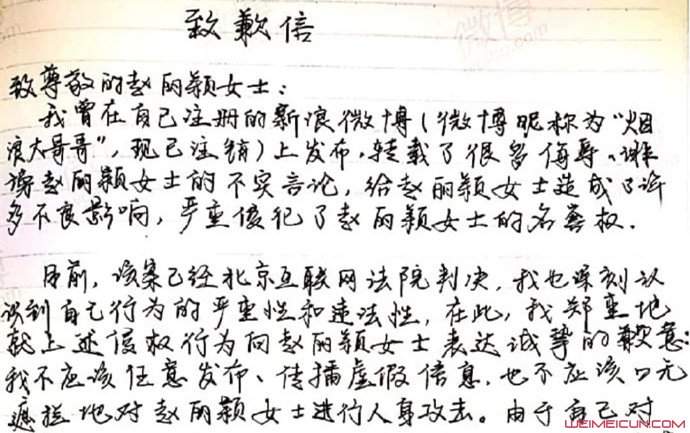 致歉信
致尊敬的赵丽颖女士：
我曾在自己注册的新浪微博（微博昵称为“烟
浪大哥哥”，现已注销）上发布、转载了很多侮辱、诽
谤赵丽颖女士的不实言论，给赵丽颖女士造成了许
多不良影响，严重侵犯了赵丽颖女士的名誉权.
目前，该案已经北京互联网法院判决，我也深刻认
识到自己行为的严重性和违法性，在此，我郑重地
就上述侵权行为向赵丽颖女士表达诚挚的歉意：
我不应该任意发布、传播虚假信息，也不应该口无
遮拦地对赵丽颖女士进行人身攻击。由于自己对
WEIMEICUN.COM